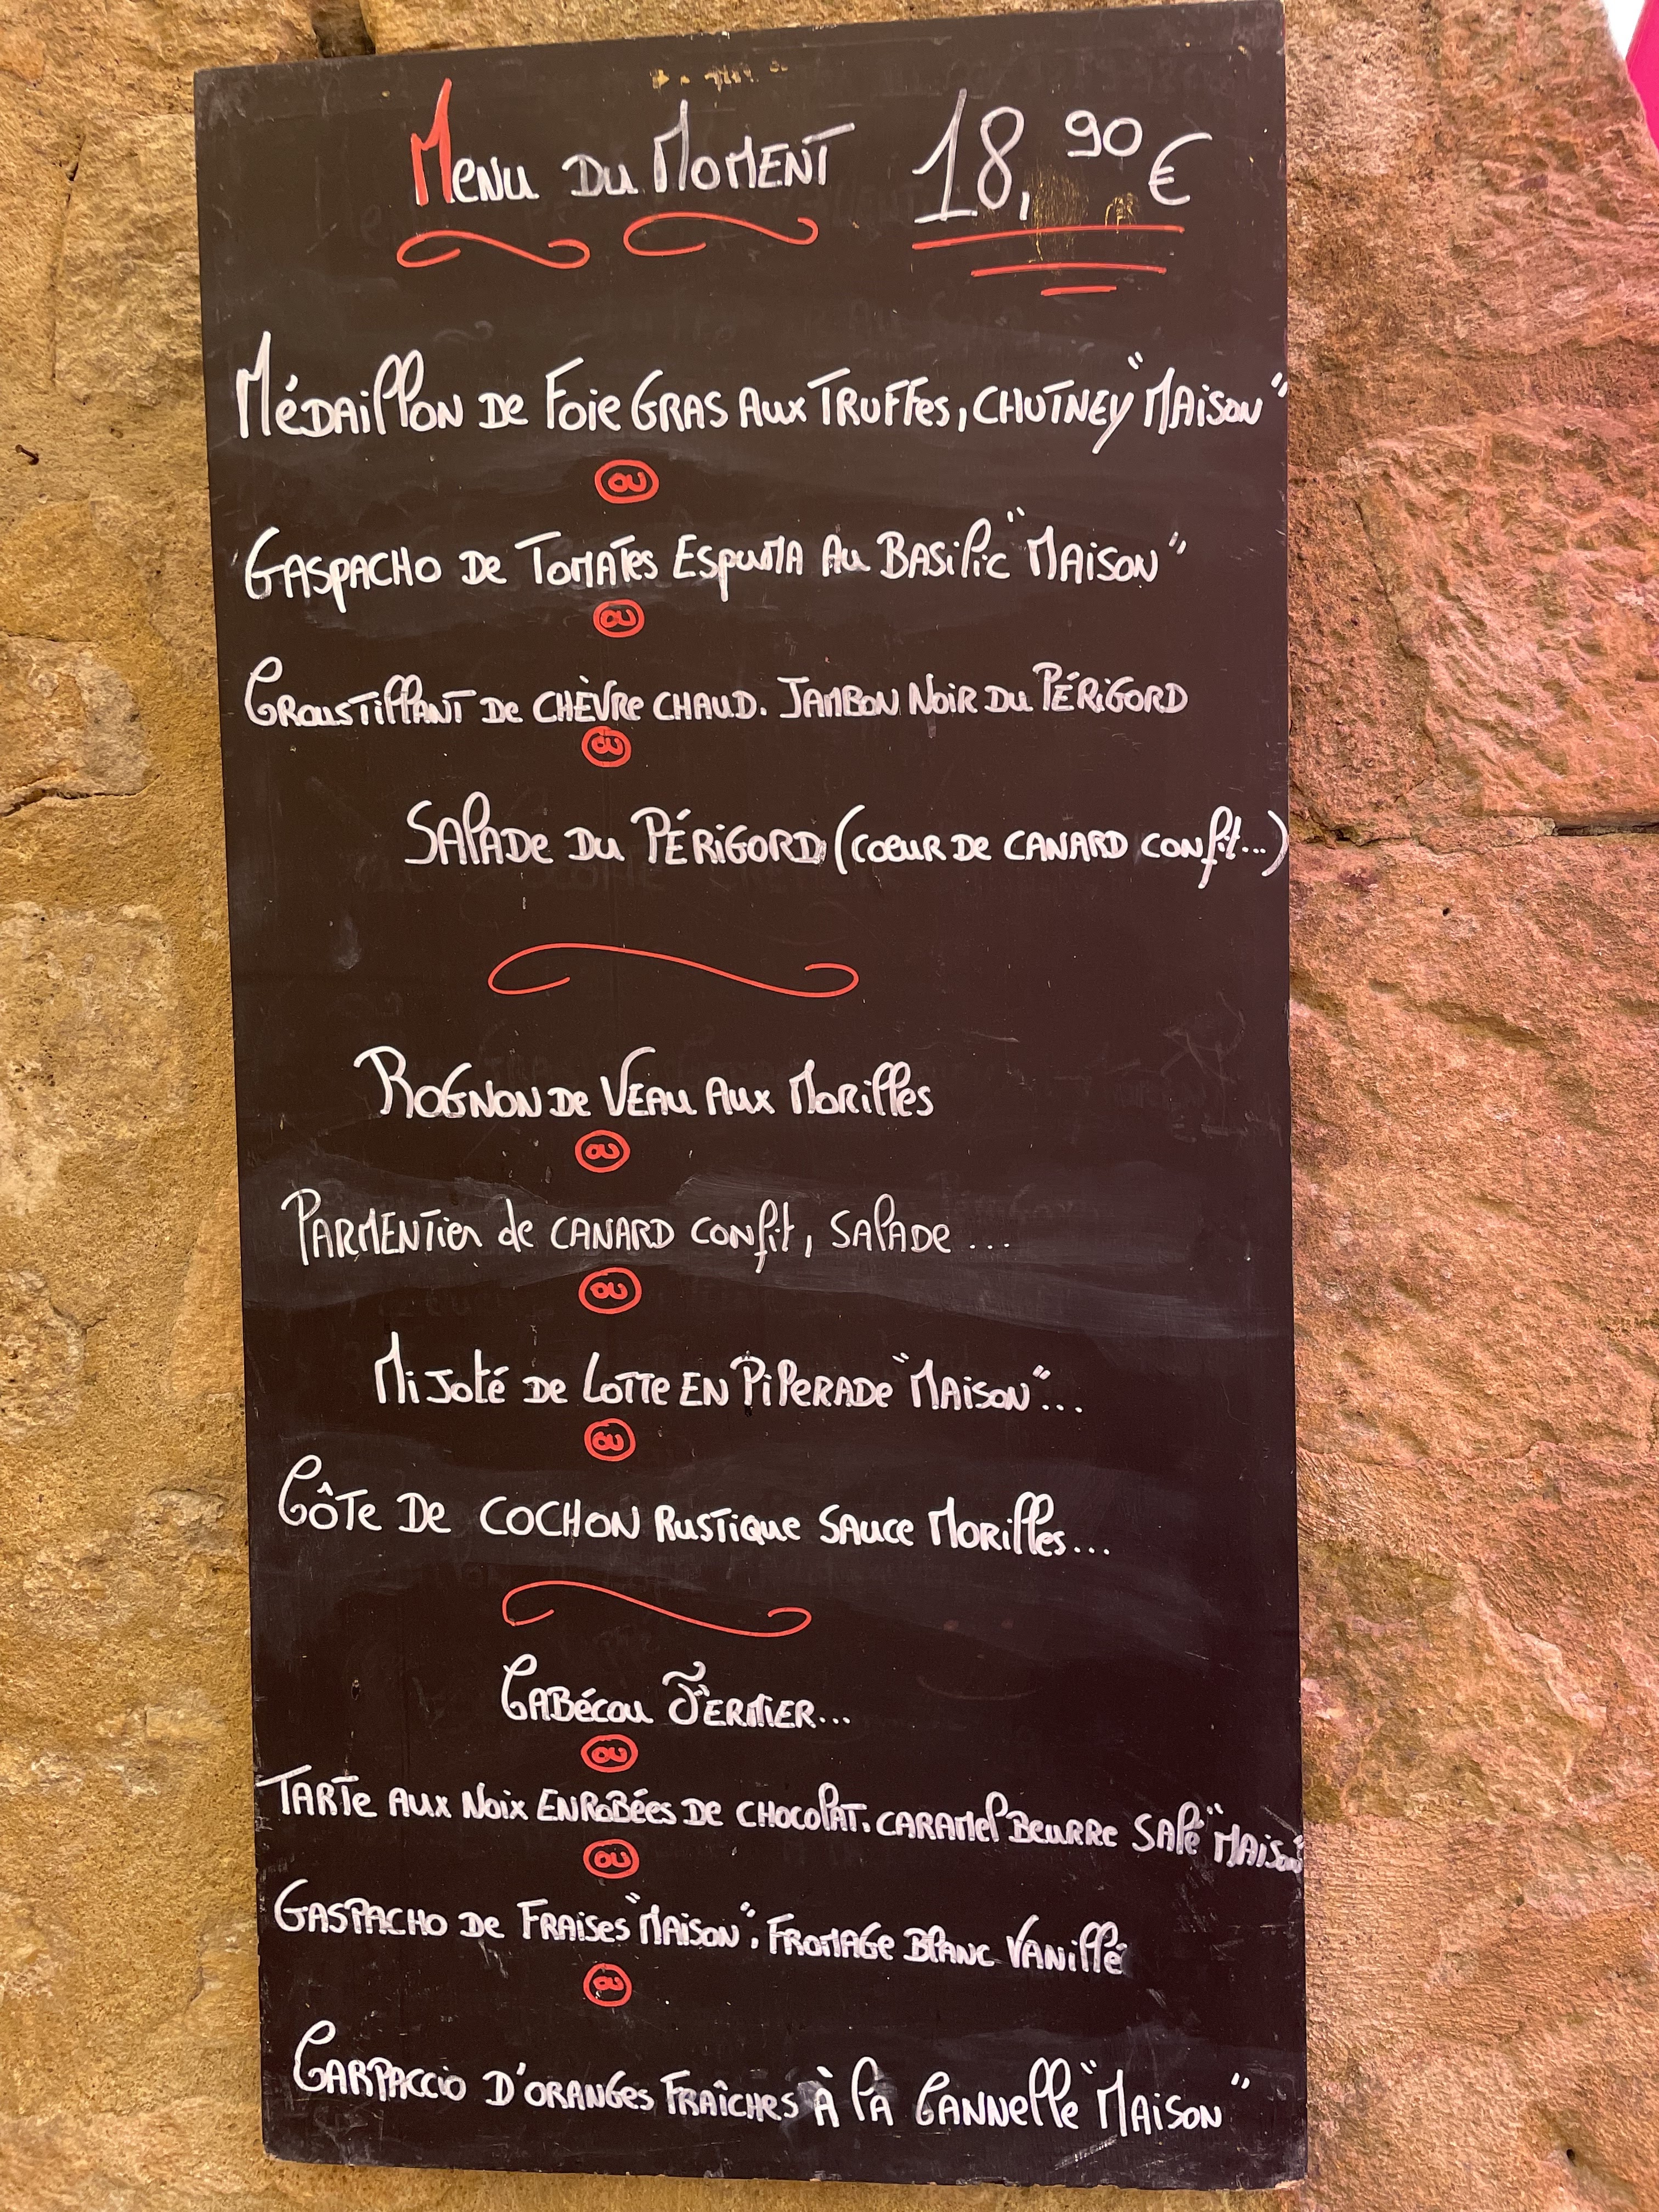 Menu Du Moment 18,90€
Médaillon de Foie Gras Aux Truffes, Chutney "Maison"
ou
Gaspacho de Tomates Espuma Au Basilic "Maison"
ou
Croustillant de Chèvre Chaud. Jambon Noir Du Périgord
ou
Salade Du Périgord (Coeur de Canard Confit...)
Rognon de Veau Aux Morilles
ou
Parmentier de Canard Confit, Salade ...
ou
Mijoté de Lotte en Piperade "Maison"...
ou
Côte De Cochon Rustique Sauce Morilles...
Cabécou Fermier...
ou
Tarte Aux Noix Enrobées De Chocolat. Caramel Beurre Salé "Maison"
ou
Gaspacho de Fraises "Maison", Fromage Blanc Vanillé
ou
Carpaccio D'Oranges Fraîches À la Cannelle "Maison"